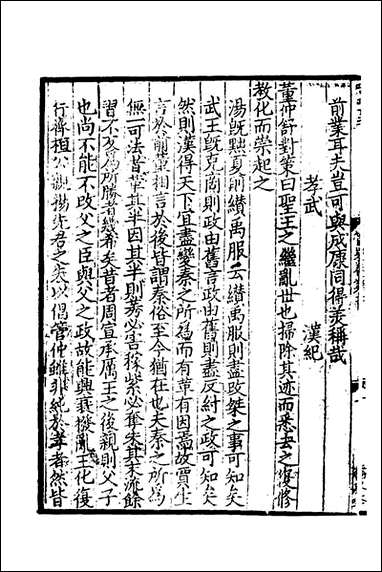 前業耳夫豈可與成康同得美稱哉
孝武　漢紀
董仲舒對策曰聖王之繼亂世也掃除其迹而悉去之復修
教化而崇起之
湯旣黜夏則纘禹服云纘禹服則盡改桀之事可知矣
武王旣克商則政由舊言政由舊則盡反紂之政可知矣
然則漢得天下宜盡變秦之所爲而有革有因焉故賈生
言於前董相言於後皆謂秦俗至今猶在也夫秦之所爲
無可法者革其半因其半則莠必害稼紫必奪朱其末流餘
習不爲所勝者幾希矣昔者周宣承厲王之後親則父子
也尚不能不改父之臣與父之政故能興衰撥亂王化復
行齊桓公 襄先君之失以倡管仲雖非純於善者然皆